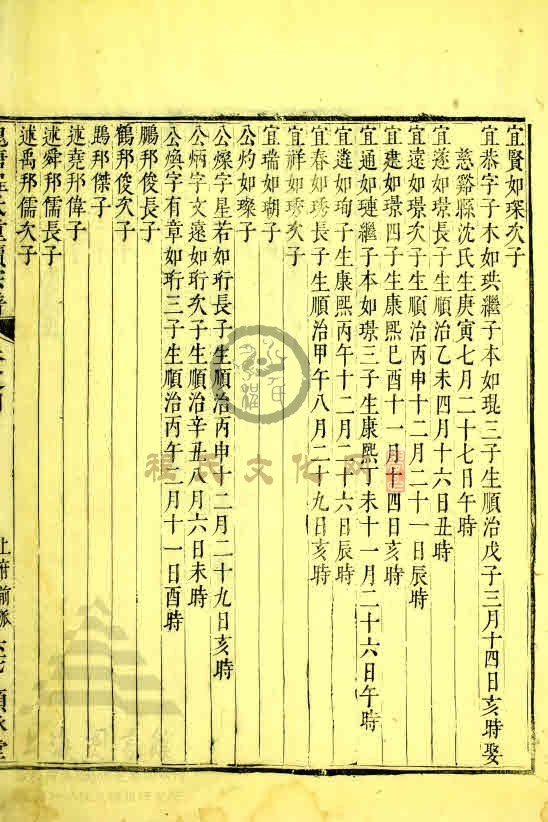 宜賢如琛次子
宜恭字子木如珙繼子本如琨三子生順治戊子三月十四日亥時娶
慈谿縣沈氏生庚寅七月二十七日午時
宜遂如璟長子生順治乙未四月十六日丑時
宜遠如璟次子生順治丙申十二月二十一日辰時
宜建如璟四子生康熙己酉十一月十四日亥時
宜通如璉繼子本如璟三子生康熙丁未十一月二十六日午時
宜遴如珣子生康熙丙午十二月二十六日辰時
宜春如琇長子生順治甲午八月二十九日亥時
宜祥如琇次子
宜瑞如瑚子
公灼如璨子
公燦字星若如珩長子生順治丙申十二月二十九日亥時
公炳字文遠如珩次子生順治辛丑八月六日未時
公煥字有章如珩三子生順治丙午二月十一日酉時
鵬邦俊長子
鶴邦俊次子
鵾邦傑子
述堯邦偉子
述舜邦儒長子
述禹邦儒次子
上府前派
程氏文化网